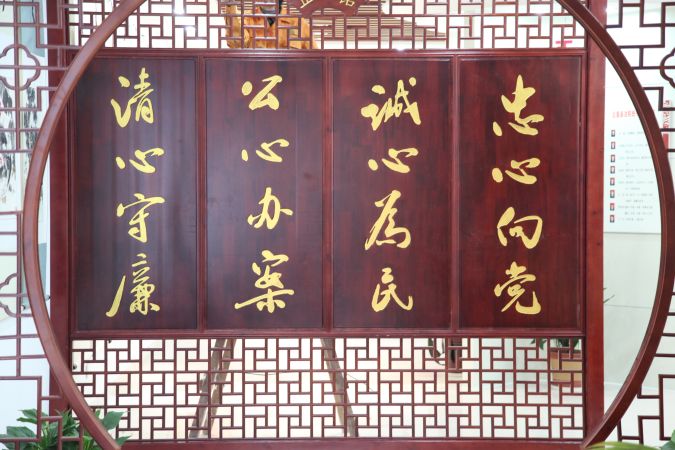 忠心向党
诚心為民
公心办案
清心守廉